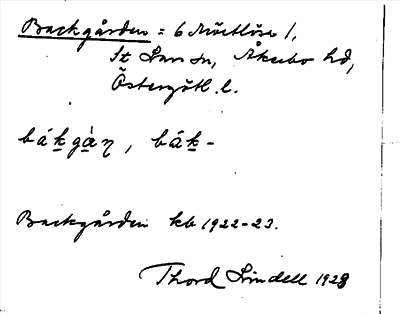 Backgården = 6 Mörtlösa 1,
St Lars sn, Åkerbo hd,
Östergötl. l.
bákgàɳ, bák-
Backgården kb 1922-23.
Thord Lindell 1928